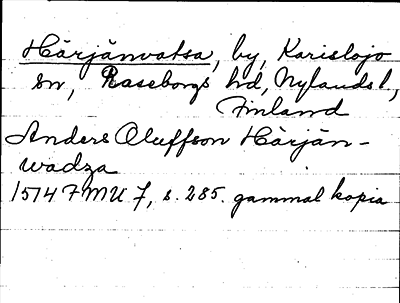 Härjänvatsa, by, Karislojo
sn, Raseborgs hd, Nylands l,
Finland
Anders Oluffson Härjän-
wadza
1514 FMU 7, s. 285. gammal kopia